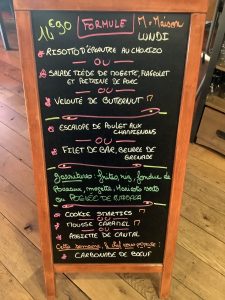 14€90 FORMULE M-MAISON
LUNDI
RISOTTO D'ÉPEAUTRE AU CHORIZO
OU
SALADE TIÈDE DE MOGETTE,
ET POITRINE DE PORC
OU
VELOUTÉ DE BUTTERNUT
ESCALOPE DE POULET AUX
CHAMPIGNONS
OU
FILET DE BAR, BEURRE DE
GRENADE
Garnitures: frites, riz, fondue de
Poireaux, mogette, Haricots verts
ou POÊLÉE DE
COOKIE SMARTIES
MOUSSE CARAMEL
OU
ASSIETTE DE CANTAL
Cette semaine, le
CARBONADE DE BŒUF